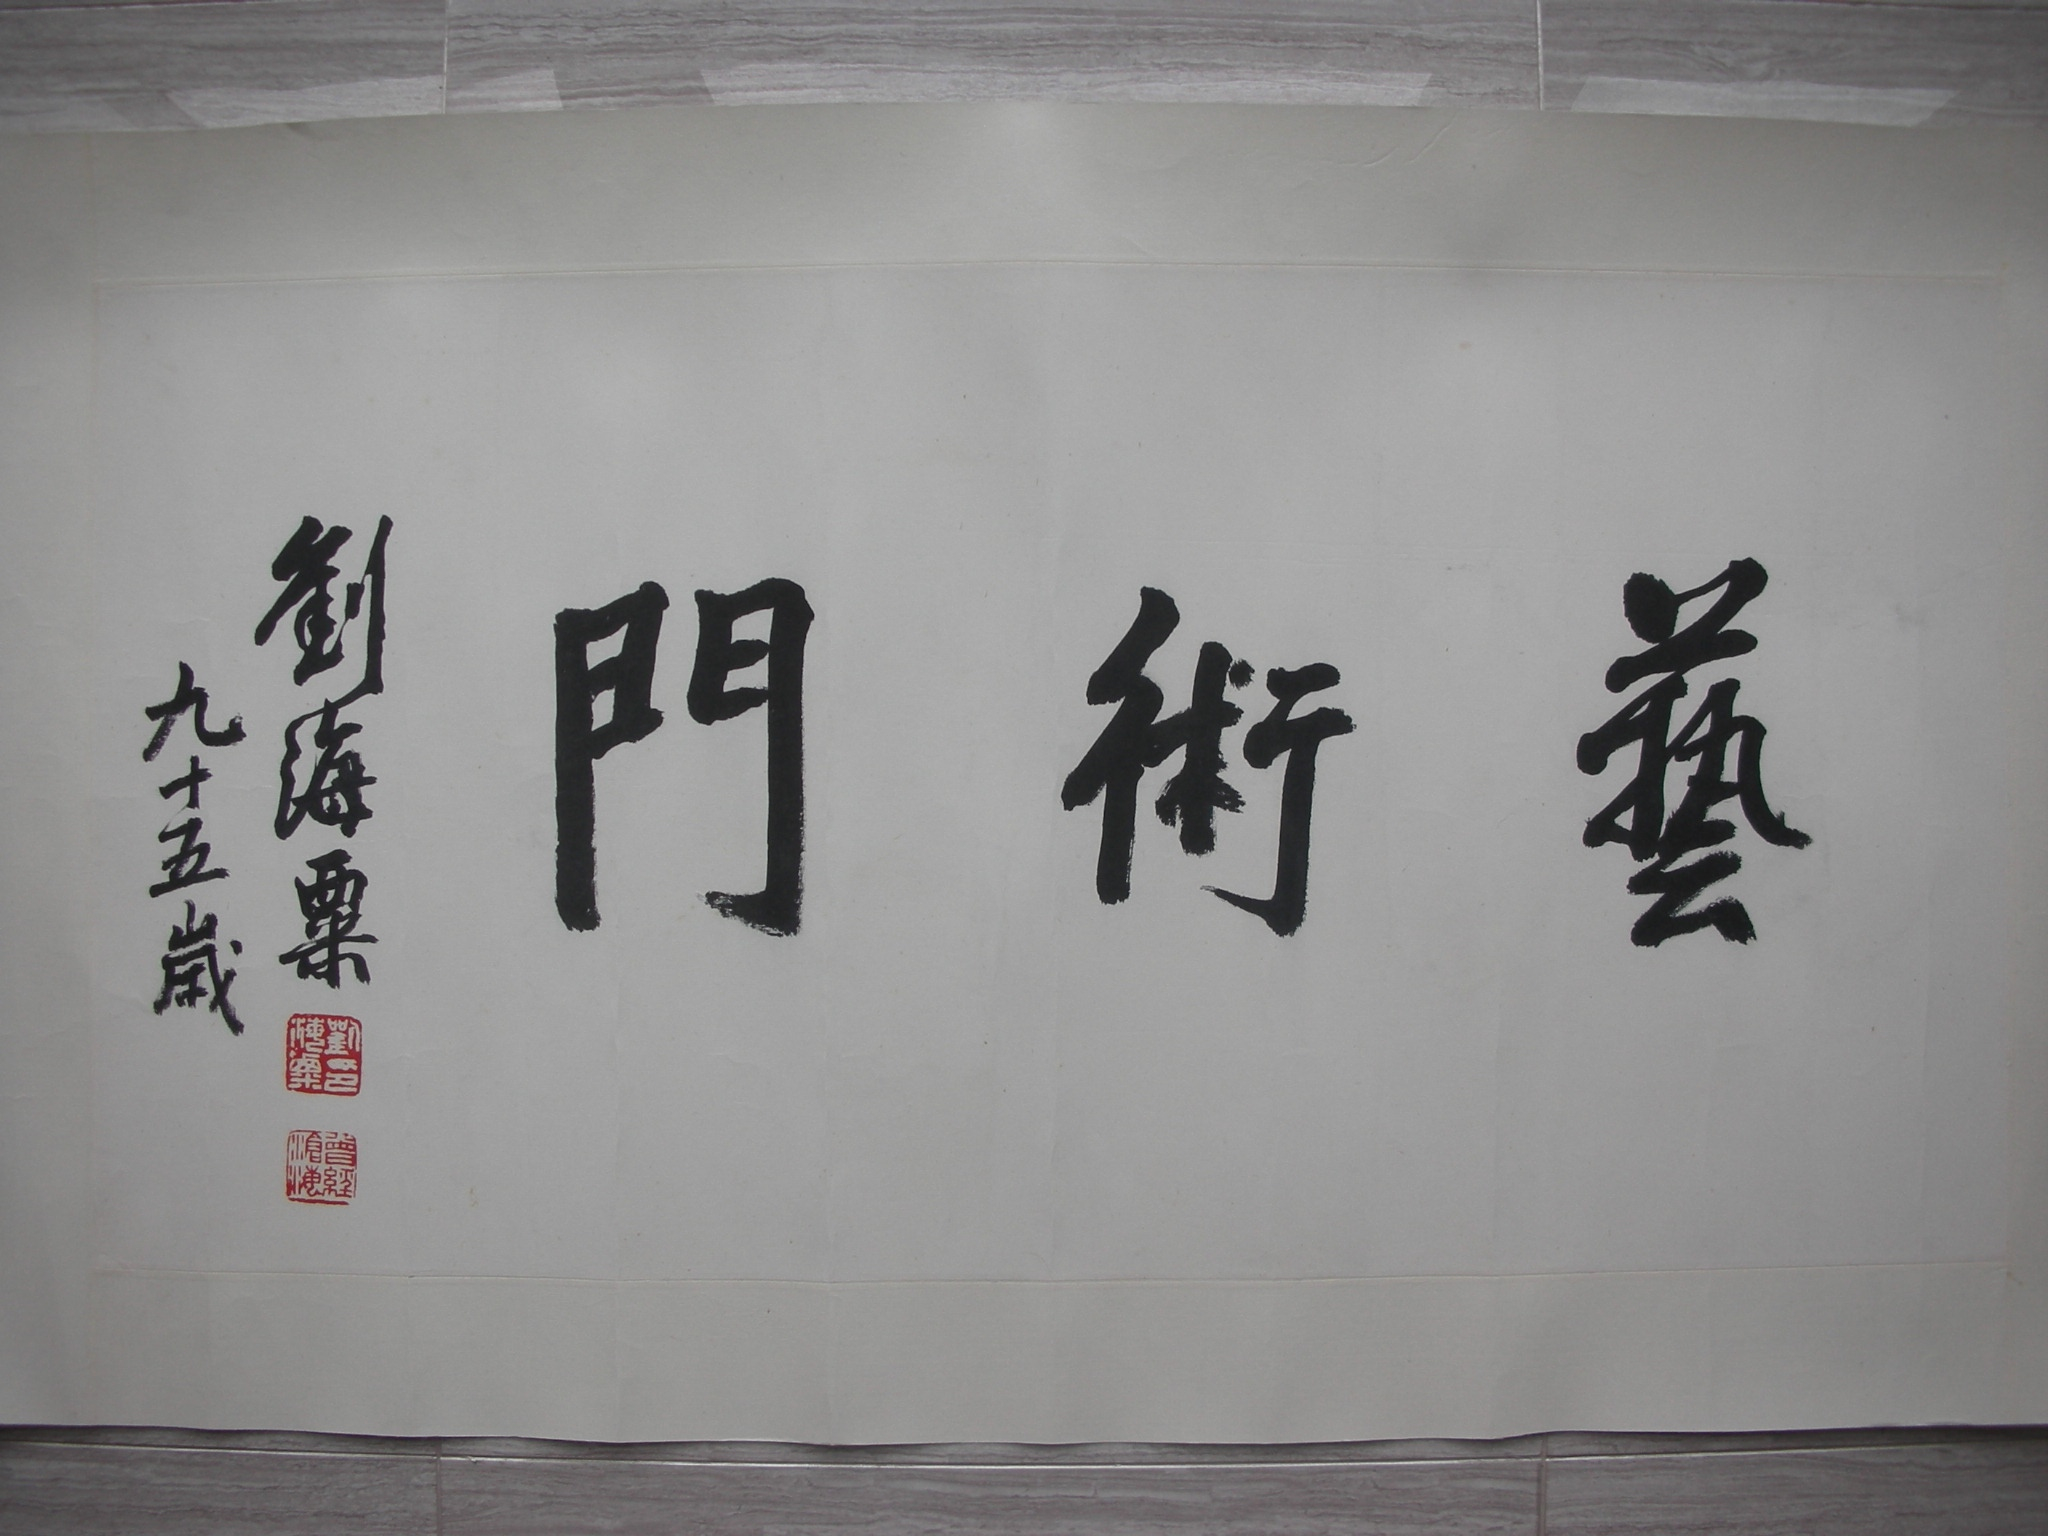 藝術門
劉海粟
九十五歲
劉海粟印
曾經滄海